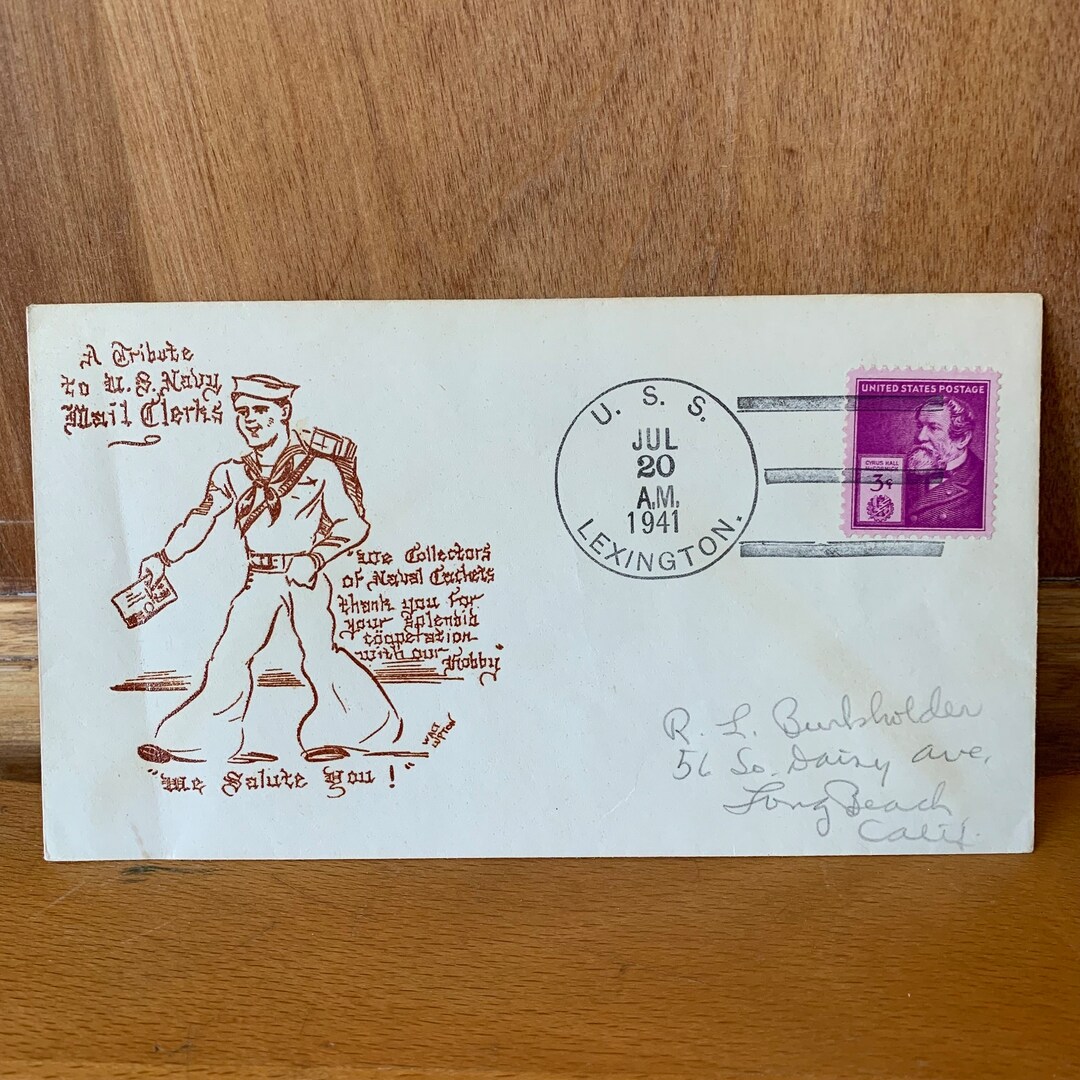 A Tribute
to U.S. Navy
Mail Clerks
"We Collectors
of Naval Cachets
thank you for
your splendid
coöperation
with our
Hobby"
WALT
LIPTON
"We Salute You!"
U. S. S.
JUL
20
A.M.
1941
LEXINGTON.
UNITED STATES POSTAGE
CYRUS HALL
McCORMICK
3¢
R. L. Burkholder
56 So. Daisy Ave,
Long Beach
Calif.